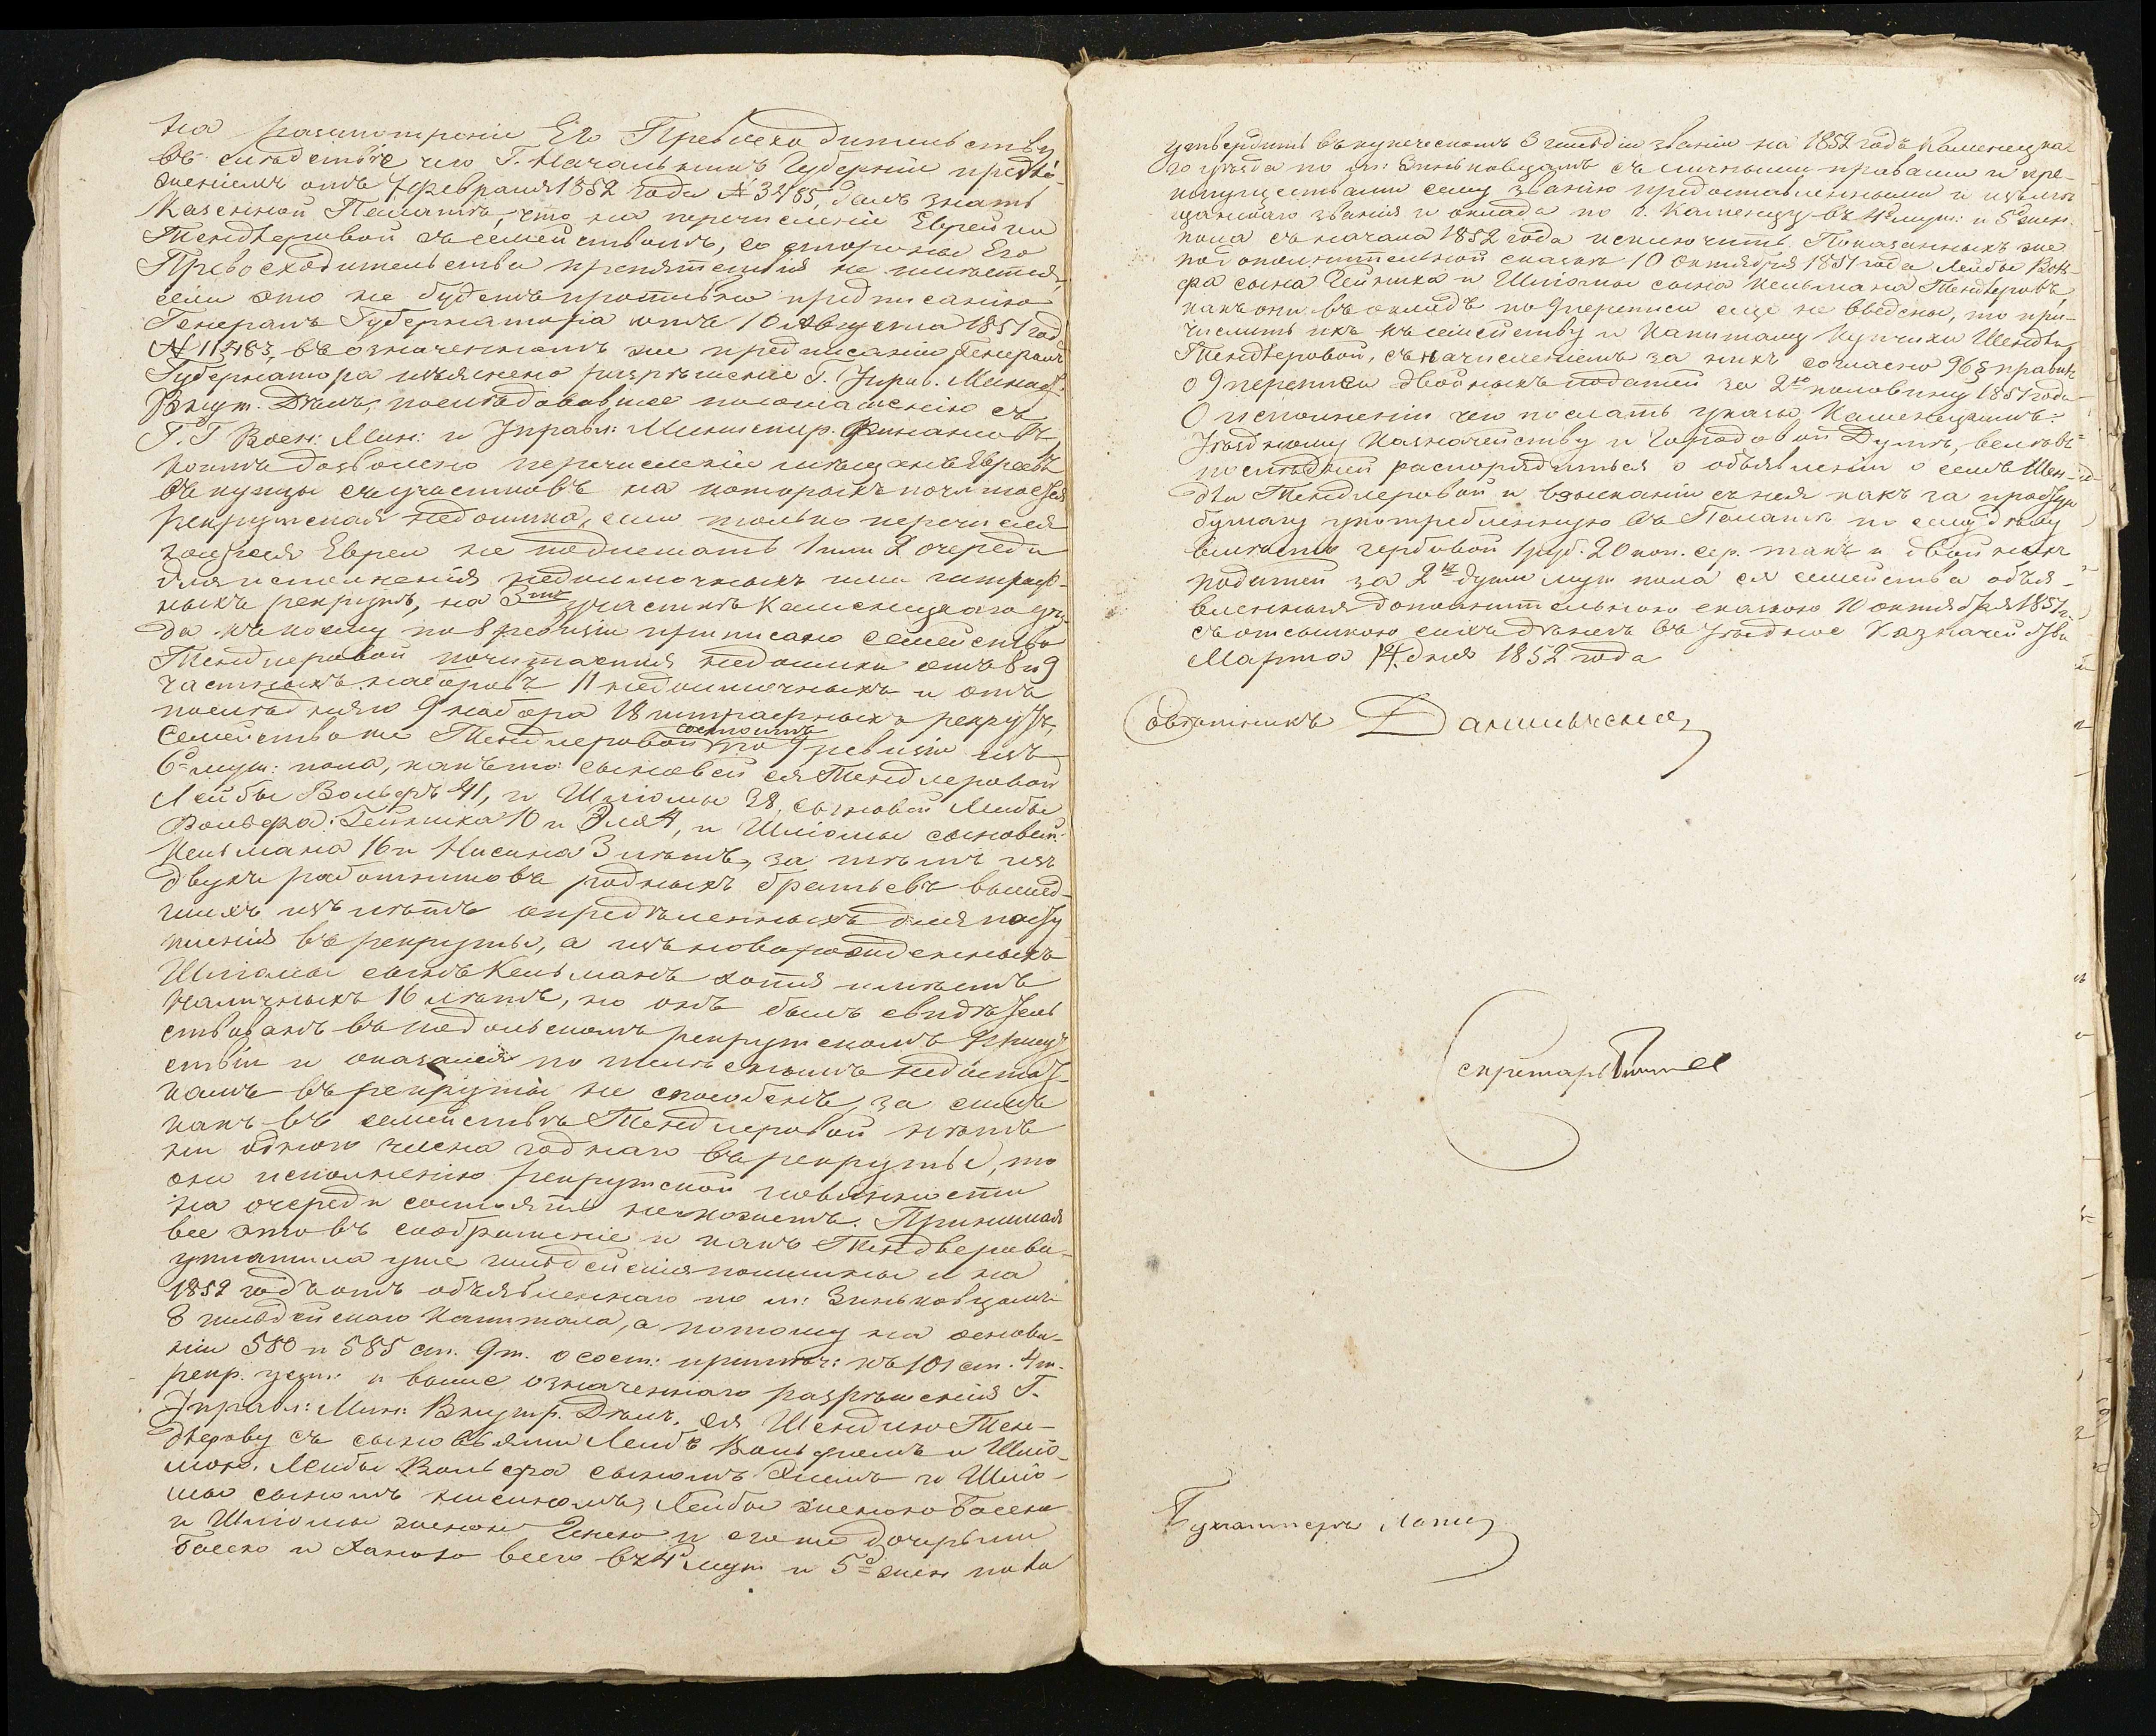 на разсмотреніи Его Превосходительству
въ слѣдствіе чего Г. Начальникъ Губерніи предло-
женіемъ отъ 7 Февраля 1852 года № 3485, далъ знать
Казенной Палатѣ, что на перечисленіи Еврейки
Тендлеровой съ семействомъ, со стороны Его
Превосходительства препятствія не имѣется,
если это не будетъ противно предписанію
Генералъ Губернатора отъ 10 Августа 1851 года
№ 11483, въ означенномъ же предписаніи Генералъ
Губернатора изъяснено разрѣшеніе Г. Управ. Минист.
Внут. Дѣлъ, послѣдовавшее по соглашенію съ
Г. Г. Воен: Мин: и Управл: Министер. Финансовъ,
коимъ дозволено перечисленіе мѣщанъ Евреевъ
въ купцы съ участковъ на которыхъ почитается
рекрутская недоимка, если только перечисля
ющіеся Евреи не подлежатъ 1 или 2 очереди
для исполненія недоимочныхъ или штраф-
ныхъ рекрутъ, на 3мъ участкѣ Каменецкаго уѣз-
да къ коему по 8 ревизіи приписано семейство
Тендлеровой почитаемыя недоимки отъ 8 и 9
частныхъ наборовъ 11 недоимочныхъ и отъ
послѣдняго 9 набора 18 штрафныхъ рекрутъ,
Семейство же Тендлеровой состоитъ по 9 ревизіи изъ
6ъ муж: пола, какъ то: сыновей ея Тендлеровой
Лейбы Вольфъ 41, и Шліомы 38, сыновей Лейбы
Вольфа: Гейниха 10 и Эля 4, и Шліомы сыновей:
Кельмана 16 и Нисина 3 лѣтъ, за тѣмъ изъ
двухъ работниковъ родныхъ братьевъ вышед-
шихъ изъ лѣтъ опредѣленныхъ для посту
пленія въ рекруты, а изъ новорожденныхъ
Шліомы сынъ Кельманъ хотя имѣетъ
наличныхъ 16 лѣтъ, но онъ былъ свидѣтель
ствованъ въ Подольскомъ рекрутскомъ Присут
ствіи и оказался по тѣлеснымъ недостат-
камъ въ рекруты не способенъ, за симъ
какъ въ семействѣ Тендлеровой нѣтъ
ни одного члена годнаго въ рекруты, то
оно исполненію рекрутской повинности
на очереди состоять не можетъ. Принимая
все это въ соображеніе и какъ Тендлерова
уплатила уже гильдейскія пошлины и на
1852 годъ отъ объявленнаго по м: Зиньковцамъ
3 гильдейскаго Капитала, а потому на основа-
ніи 580 и 585 ст. 9 т. о сост: примѣч: къ 101 ст. 4 т.
рекр. уст: и выше означеннаго разрѣшенія Г.
Управл: Мин: Внутр. Дѣлъ. Ея Шендлю Тен-
длерову съ сыновьями Лейбъ Вольфомъ и Шліо-
мою. Лейбы Вольфа сыномъ Элемъ и Шліо-
мы сыномъ Нисиномъ, Лейбы женою Басею
и Шліомы женою Генею и его же дочерьми
Басею и Ханою всего въ 4ъ муж и 5ъ жен пола
утвердить въ купеческомъ 3 гильдіи званіи на 1852 годъ Каменецка
го уѣзда по м: Зиньковцамъ съ личными правами и пре-
имуществами сему званію предоставленными и изъ мѣ
щанскаго званія и оклада по г. Каменцу въ 4ъ муж: и 5ъ жен.
пола съ начала 1852 года исключить. Показанныхъ же
по дополнительной сказкѣ 10 Октября 1851 года Лейбы Воль-
фа сына Гейниха и Шліомы сына Кельмана Тендлеровъ,
какъ они въ окладъ по 9 переписи еще не введены, то при-
числить ихъ къ семейству и капиталу Купчихи Шендли
Тендлеровой, съ начисленіемъ за нихъ согласно 96 § правилъ
о 9 переписи двойныхъ податей за 2ю половину 1851 года
О исполненіи чего послать указы Каменецкимъ:
Уѣздному Казначейству и Городовой Думѣ, велѣвъ
послѣдней распорядиться о объявленіи о семъ Шен-
дли Тендлеровой и взысканіи съ нея какъ за простую
бумагу употребленную въ Палатѣ по сему дѣлу
вмѣсто гербовой 1 руб. 20 коп. сер. такъ и двойныхъ
податей за 2хъ душъ муж пола ея семейства объя-
вленныя дополнительною сказкою 10 октября 1851 г.
съ отсылкою сихъ денегъ въ Уѣздное Казначейство
Марта 14 дня 1852 года
Совѣтникъ Данильченко
Секретарь
Бухгалтеръ